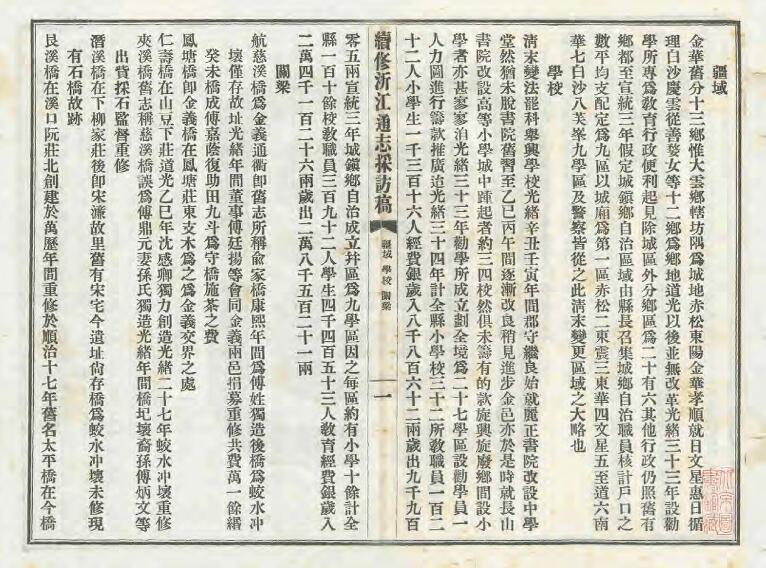 疆域
金華舊分十三鄉惟大雲鄉轄坊隅爲城地赤松東陽金華孝順就日文星惠日循
理白沙慶雲從善婺女等十二鄉爲鄉地道光以後並無改革光緒三十三年設勸
學所專爲敎育行政便利起見除城區外分鄉區爲二十有六其他行政仍照舊有
鄉都至宣統三年假定城鎮鄉自治區域由縣長召集城鄉自治職員核計戶口之
數平均支配定爲九區以城廂爲第一區赤松二東震三東華四文星五至道六南
華七白沙八芙峯九學區及警察皆從之此淸末變更區域之大略也
學校
淸末變法罷科舉興學校光緒辛丑壬寅年間郡守繼良始就麗正書院改設中學
堂然猶未脫書院舊習至乙巳丙午間逐漸改良稍見進步金邑亦於是時就長山
書院改設高等小學城中踵起者約三四校然俱未籌有的款旋興旋廢鄉間設小
學者亦甚寥寥洎光緒三十三年勸學所成立劃全境爲二十七學區設勸學員一
人力圖進行籌款推廣迄光緒三十四年計全縣小學校三十二所敎職員一百二
十二人小學生一千三百十六人經費銀歲入八千八百六十二兩歲出九千九百
續修浙江通志採訪稿
疆域 學校 關梁
一
零五兩宣統三年城鎮鄉自治成立幷區爲九學區因之每區約有小學十餘計全
縣一百十餘校敎職員三百九十二人學生四千四百五十三人敎育經費銀歲入
二萬四千一百二十六兩歲出二萬八千五百二十一兩
關梁
航慈溪橋爲金義通衢卽舊志所稱俞家橋康熙年間爲傅姓獨造後橋爲蛟水冲
壞僅存故址光緒年間董事傅廷揚等會同金義兩邑捐募重修共費萬一餘緡
癸未橋成傅嘉蔭復助田九斗爲守橋施茶之費
鳳塘橋卽金義橋在鳳塘莊東支木爲之爲金義交界之處
仁壽橋在山豆下莊道光乙巳年沈感卿獨力創造光緒二十七年蛟水冲壞重修
夾溪橋舊志稱慈溪橋誤爲傅鼎元妻孫氏獨造光緒年間橋圮壞裔孫傅炳文等
出貲採石監督重修
潛溪橋在下柳家莊後卽宋濂故里舊有宋宅今遺址尙存橋爲蛟水冲壞未修現
有石橋故跡
艮溪橋在溪口阮莊北創建於萬歷年間重修於順治十七年舊名太平橋在今橋